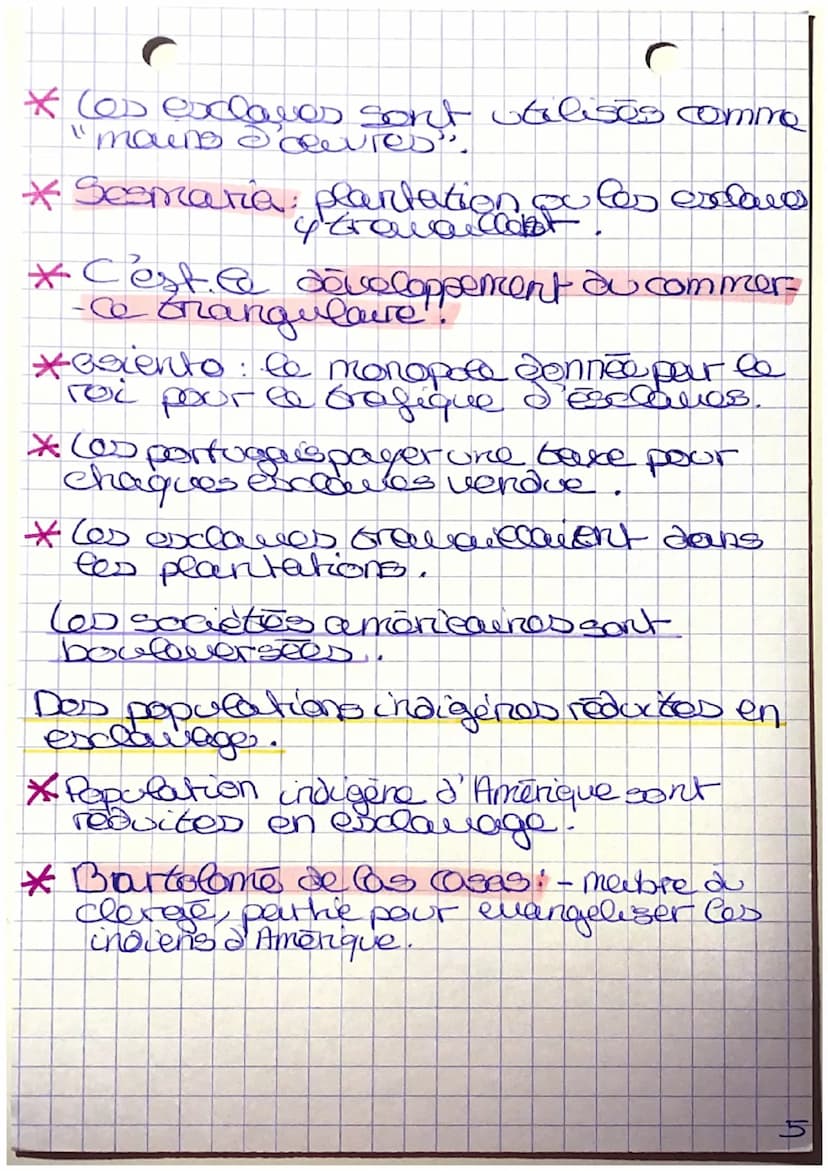 * Les esclaves sont utilisés comme
"mains d'œuvres".
* Sesmaria: plantation ou les esclaves
y travaillait.
* C'est le développement du commer-
-ce triangulaire.
* asiento: le monopole donnée par le
roi pour le trafique d'esclaves.
* Les portugais payer une taxe pour
chaques esclaves vendue.
* Les esclaves travaillaient dans
les plantations.
Les sociétés américaines sont
bouleversées.
Des populations indigènes réduites en
esclavage.
* Population indigène d'Amérique sont
réduites en esclavage.
* Bartolomé de las casas: - mebre du
clergé, partie pour evangeliser les
indiens d'Amérique.
5